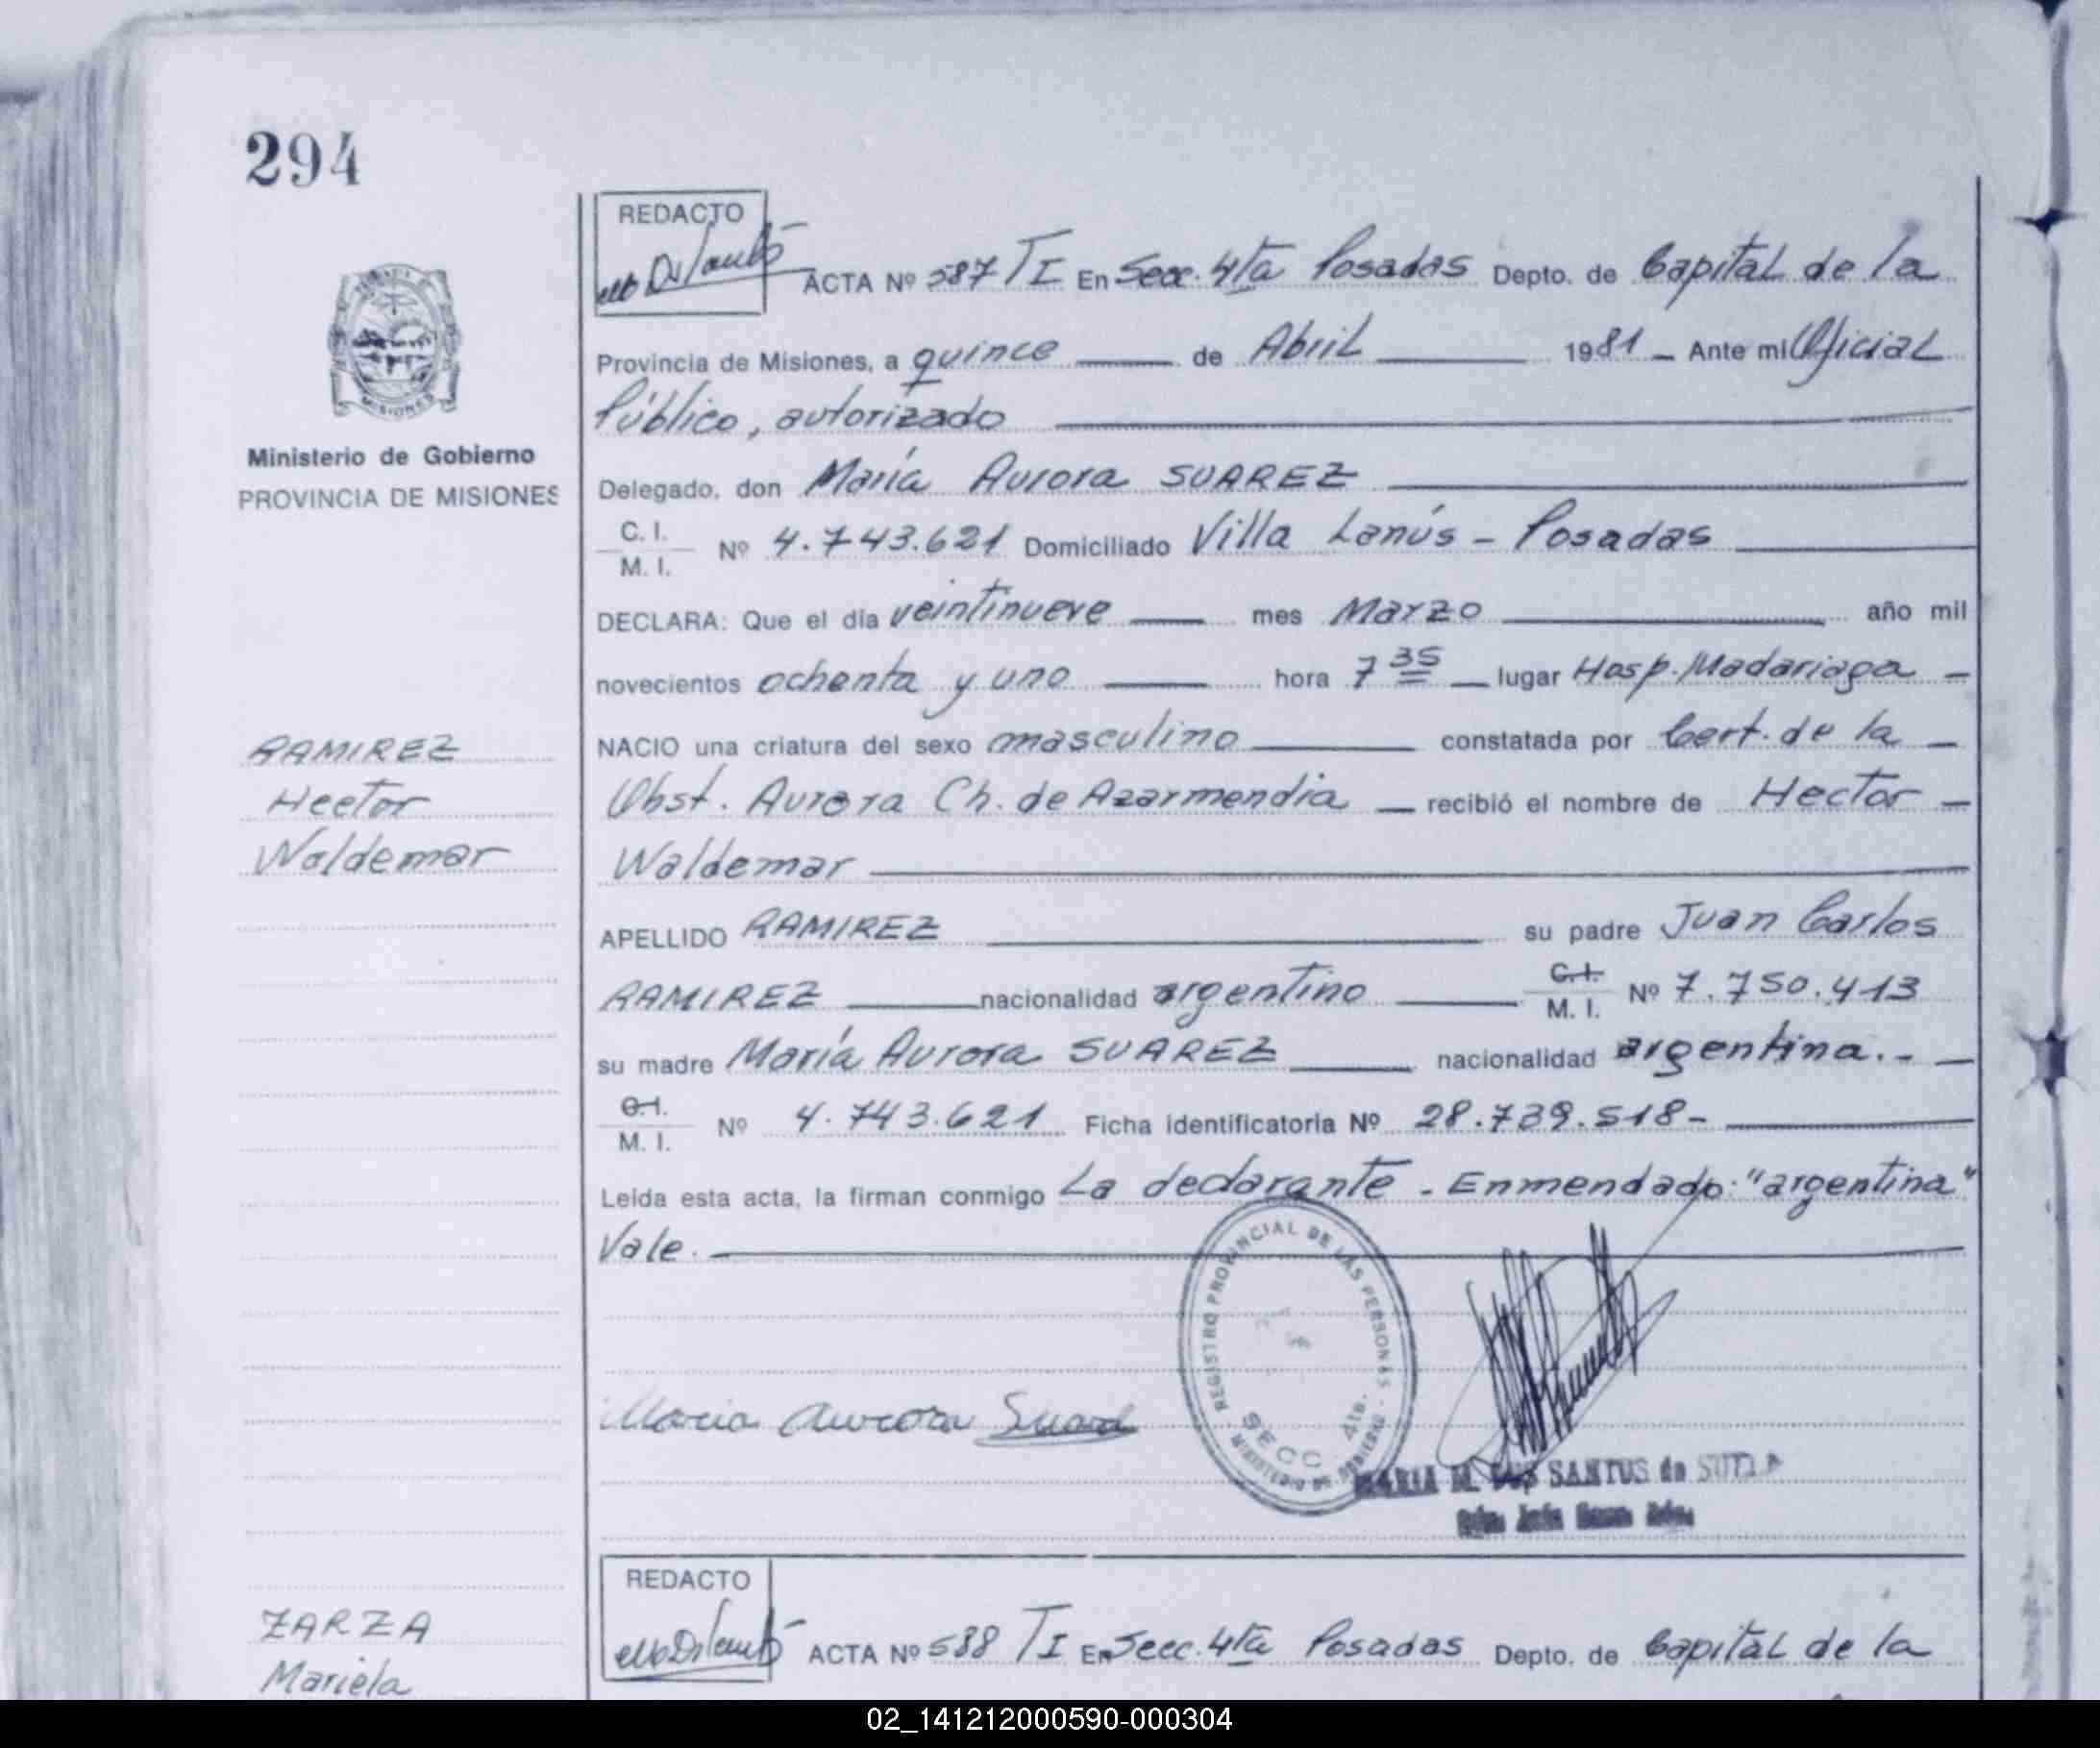 294
REDACTO
ACTA Nº 587 TI En Secc. 4ta Posadas Depto. de Capital de la
Provincia de Misiones, a quince de Abril 1981 - Ante mi Oficial
Público, autorizado
Ministerio de Gobierno
PROVINCIA DE MISIONES
Delegado, don María Aurora SUAREZ
C. I.
M. I. Nº 4.743.621 Domiciliado Villa Lanús - Posadas
DECLARA: Que el día veintinueve mes Marzo año mil
novecientos ochenta y uno hora 7 35 lugar Hosp. Madariaga -
RAMIREZ
Hector
Waldemar
NACIO una criatura del sexo masculino constatada por Cert. de la -
Obst. Aurora Ch. de Azarmendia - recibió el nombre de Hector -
Waldemar
APELLIDO RAMIREZ su padre Juan Carlos
RAMIREZ nacionalidad argentino C.I. M. I. Nº 7.750.413
su madre María Aurora SUAREZ nacionalidad argentina.-
C.I.
M. I. Nº 4.743.621 Ficha identificatoria Nº 28.739.518-
Leída esta acta, la firman conmigo La declarante - Enmendado: "argentina"
Vale.
REGISTRO PROVINCIAL DE LAS PERSONAS
SECC. 4ta.
MINISTERIO DE GOBIERNO
Maria Aurora Suarez
MARIA M. DOS SANTOS de
REDACTO
ZARZA
Mariela
ACTA Nº 588 TI En Secc. 4ta Posadas Depto. de Capital de la
02_141212000590-000304